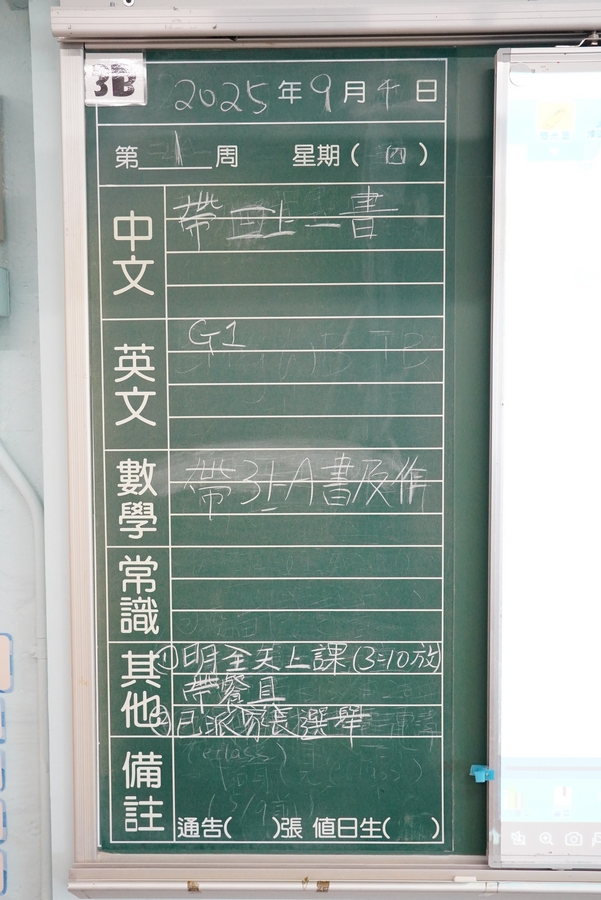 3B
2025年9月4日
第1周 星期(四)
中文
帶四上一書
英文
G1
數學
帶3上A書及作
常識
其他
①明全天上課(3:10放)
帶餐具
②已派家長選舉
備註
通告( )張 值日生( )